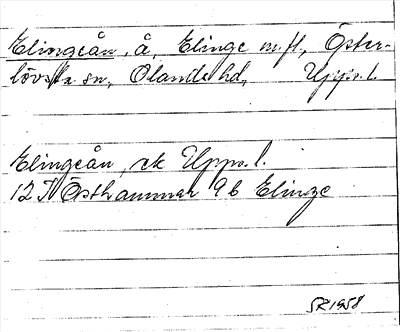 Elingeån, å, Elinge m.fl., Öster-
lövsta sn, Olands hd, Upps. l.
Elingeån, ek Upps. l.
12 I Östhammar 9b Elinge
SR 1958